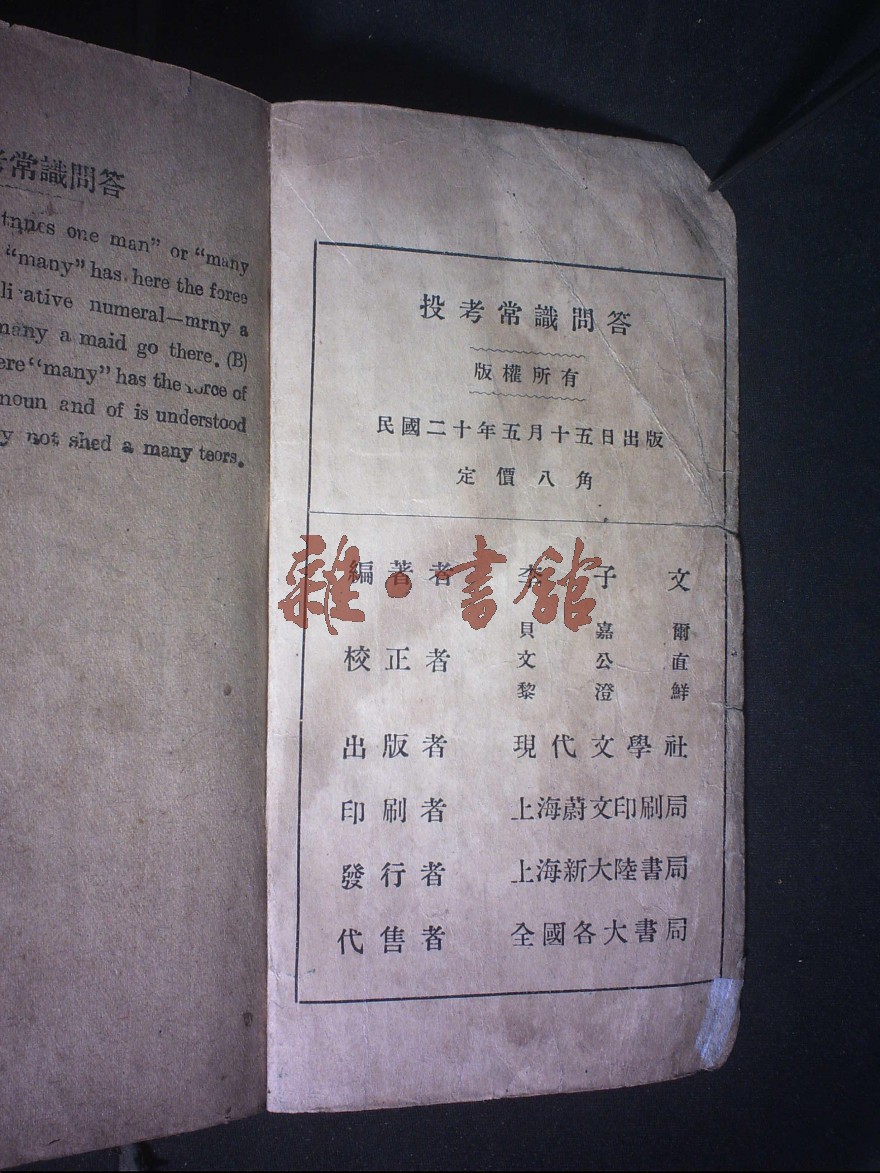 常識問答
one man” or “many
“many” has here the foree
ative numeral—mrny a
many a maid go there. (B)
ere “many” has the force of
noun and of is understood
y not shed a many teors.
投考常識問答
版權所有
民國二十年五月十五日出版
定價八角
編著者 李子文
校正者
貝嘉爾
文公直
黎澄鮮
出版者 現代文學社
印刷者 上海蔚文印刷局
發行者 上海新大陸書局
代售者 全國各大書局
雜·書館